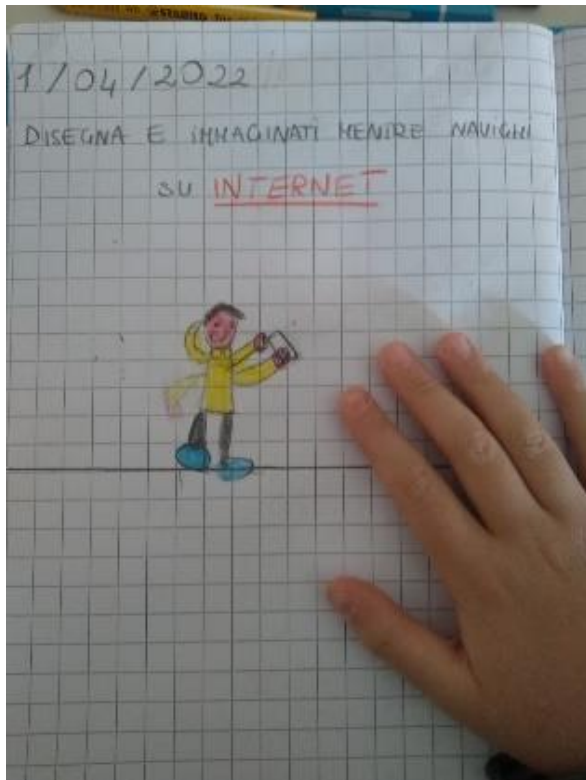 1/04/2022
DISEGNA E IMMAGINATI MENTRE NAVIGHI
SU INTERNET